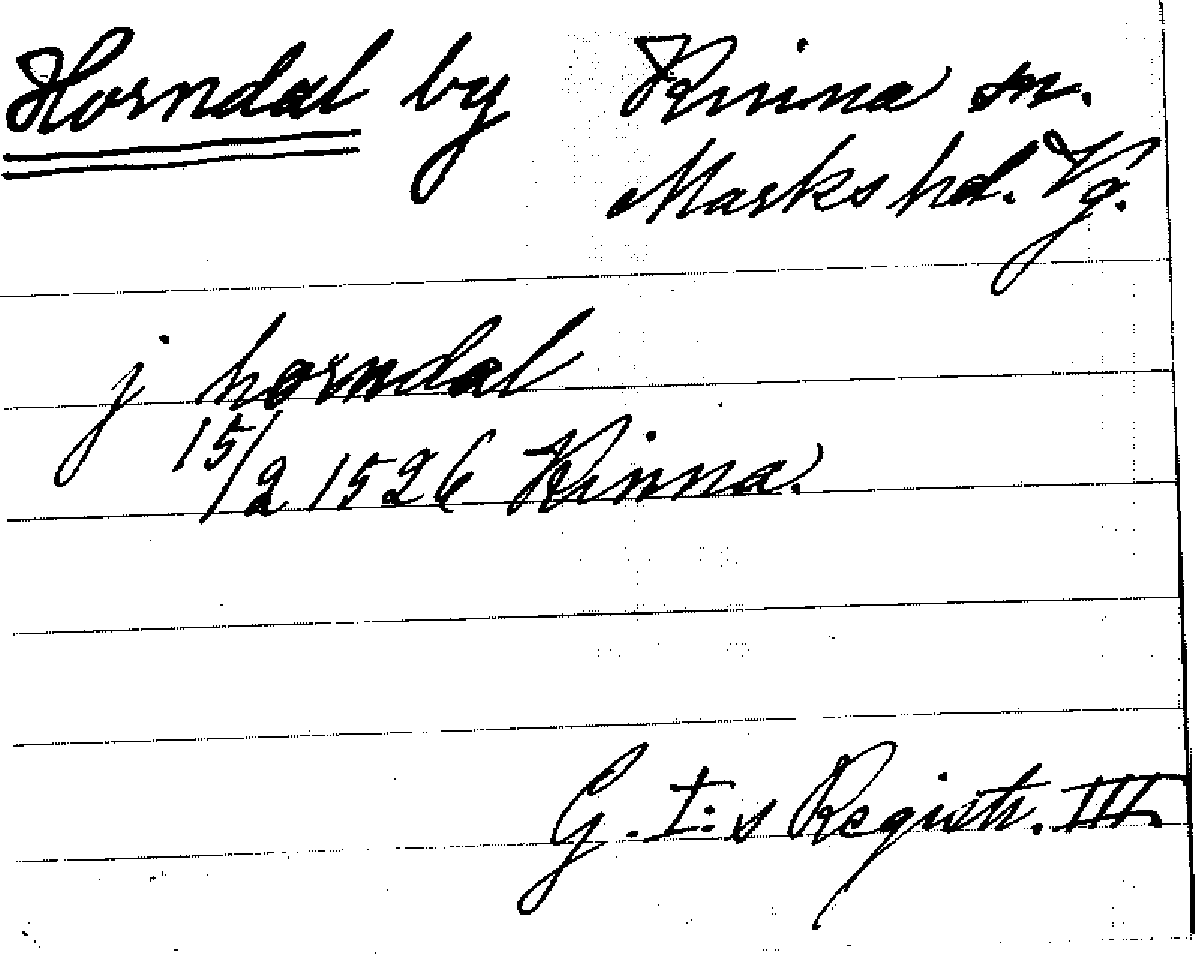 Horndal by Kinna sn.
Marks hd. Vg.
j horndal
15/2 1526 Kinna.
G. I:s Registr. III